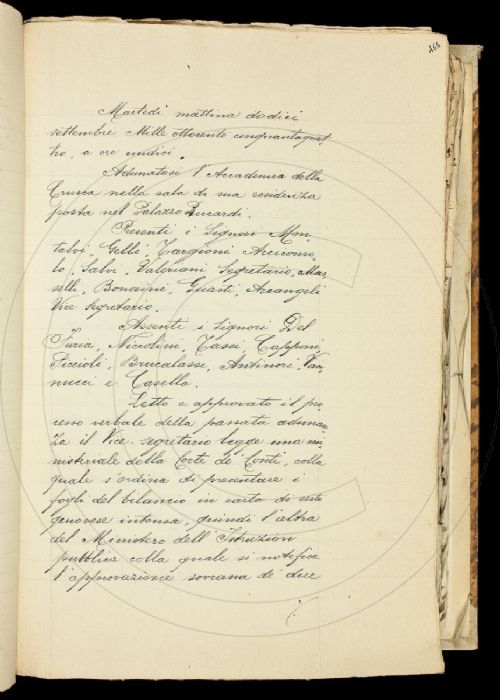 168
Martedì mattina dodici
settembre Mille ottocento cinquantaquat-
tro, a ore undici.
Adunatasi l'Accademia della
Crusca nella sala di sua residenza
posta nel Palazzo Riccardi.
Presenti i Signori Mon-
talvi, Gelli, Targioni Arciconso-
lo, Salvi, Valeriani Segretario, Mar-
selli, Bonaini, Guasti, Arcangeli
Vice Segretario.
Assenti i Signori Del
Furia, Niccolini, Tassi, Capponi,
Piccioli, Brucalassi, Antinori, Van-
nucci e Casella.
Letto e approvato il pro-
cesso verbale della passata adunan-
za il Vice-segretario legge una mi-
nisteriale della Corte de' Conti, colla
quale s'ordina di presentare i
fogli del bilancio in carta di
genovese intonsa, quindi l'altra
del Ministero dell'Istruzion
pubblica colla quale si notifica
l'approvazione sovrana de' due